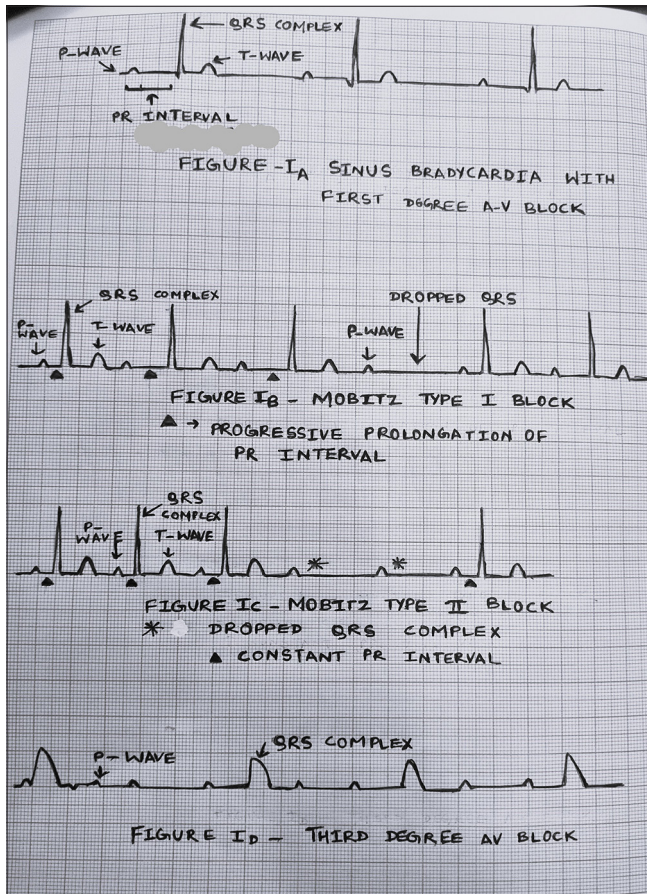 QRS COMPLEX
P-WAVE
T-WAVE
PR INTERVAL
FIGURE -IA SINUS BRADYCARDIA WITH
FIRST DEGREE A-V BLOCK
QRS COMPLEX
DROPPED QRS
P-
WAVE
T-WAVE
P-WAVE
FIGURE IB - MOBITZ TYPE I BLOCK
▲ → PROGRESSIVE PROLONGATION OF
PR INTERVAL
QRS
COMPLEX
P-
WAVE
T-WAVE
FIGURE IC - MOBITZ TYPE II BLOCK
* DROPPED QRS COMPLEX
▲ CONSTANT PR INTERVAL
P-WAVE
QRS COMPLEX
FIGURE ID - THIRD DEGREE AV BLOCK